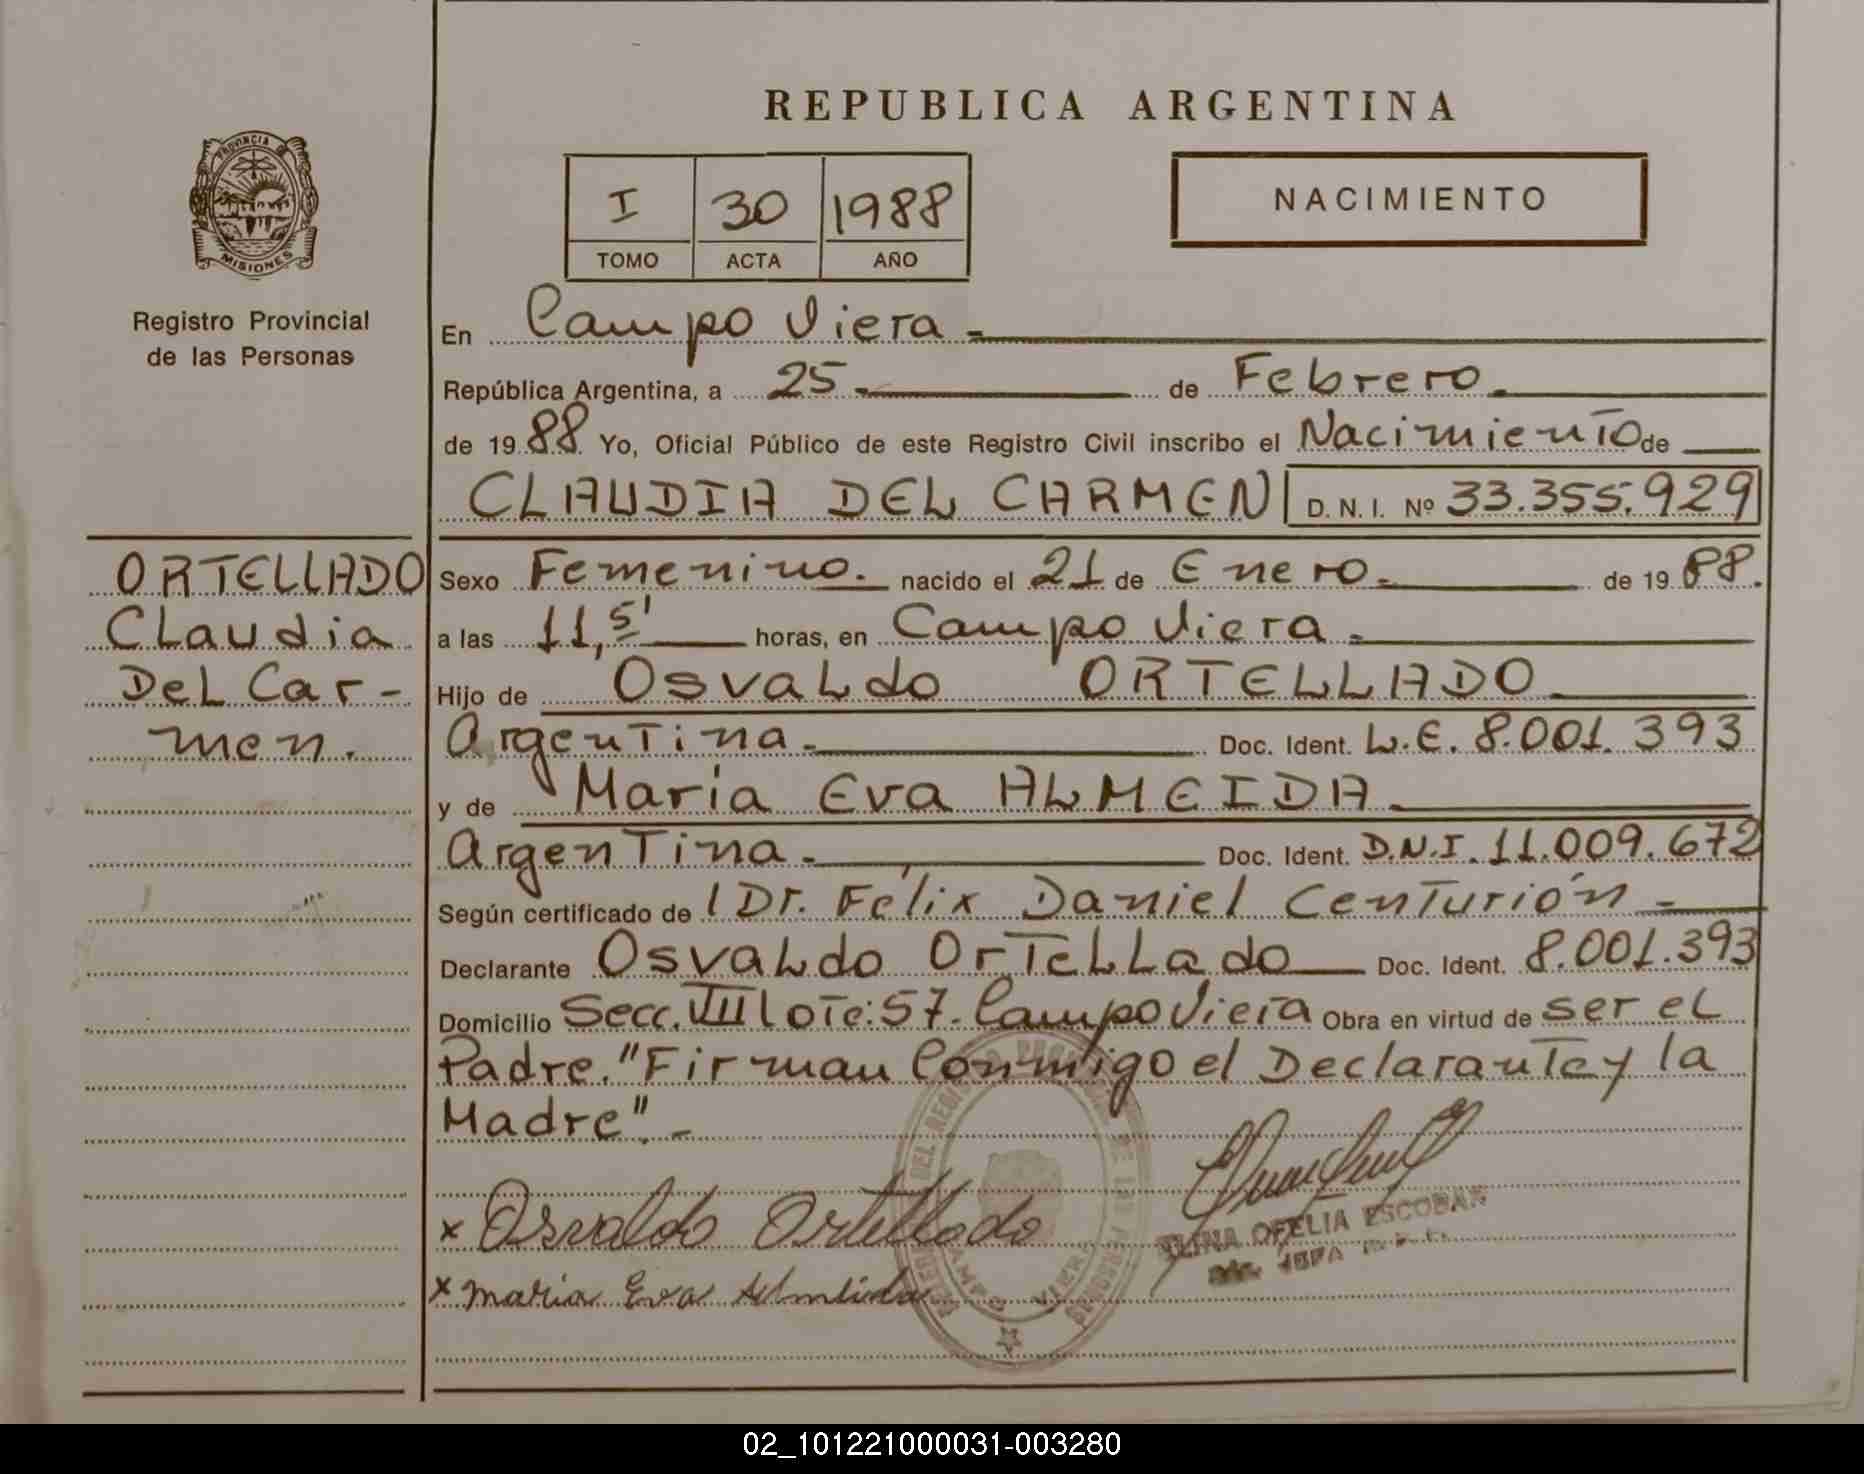 REPUBLICA ARGENTINA
PROVINCIA DE
MISIONES
Registro Provincial
de las Personas
I 30 1988
TOMO ACTA AÑO
NACIMIENTO
En Campo Viera.-
República Argentina, a 25.- de Febrero.
de 1988. Yo, Oficial Público de este Registro Civil inscribo el Nacimiento de
CLAUDIA DEL CARMEN D. N. I. Nº 33.355.929
ORTELLADO
Claudia
Del Car-
men.
Sexo Femenino. nacido el 21 de Enero. de 1988.
a las 11,5' horas, en Campo Viera.
Hijo de Osvaldo ORTELLADO
Argentina. Doc. Ident. L.E. 8.001.393
y de María Eva ALMEIDA.
Argentina. Doc. Ident. D.N.I. 11.009.672
Según certificado de Dr. Félix Daniel Centurión -
Declarante Osvaldo Ortellado Doc. Ident. 8.001.393
Domicilio Secc. VIII Lote: 57. Campo Viera Obra en virtud de ser el
Padre. "Firman Conmigo el Declarante y la
Madre".-
x Osvaldo Ortellado
x maria Eva Almeida
OFELIA ESCOBAR
JEFA
CAMPO VIERA
02_101221000031-003280